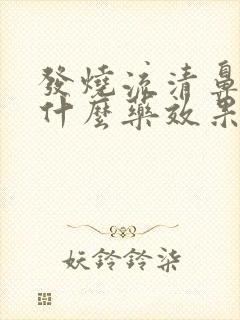 發燒流清鼻
什麼藥效果
妖鈴鈴柒